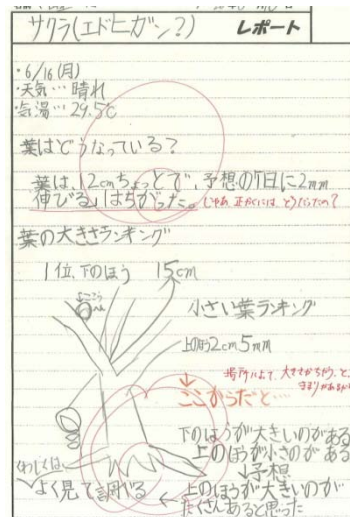 サクラ(エドヒガン?) レポート
・6/16(月)
・天気…晴れ
・気温…29.5℃
葉はどうなっている?
葉は、12cmちょっとで、予想の「1日に2mm
伸びる」はちがった。じゃあ、正かくには、どうだったの?
葉の大きさランキング
1位、下のほう 15cm
小さい葉ランキング
上のほう2cm5mm
場所によって、大きさがちがう、と、
ここからだと…
下のほうが大きいのがある
上のほうが小さのがある
↓予想
上のほうが大きいのが
たくさんあると思った
くわしくは
よく見て調べる ←